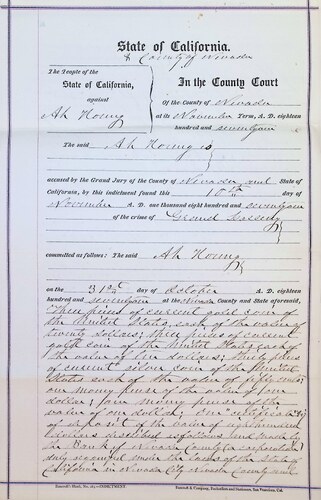 State of California.
& County of Nevada
The People of the
State of California,
against
Ah Houng
In the County Court
Of the County of Nevada
at its November Term, A. D. eighteen
hundred and seventy
The said Ah Houng is
accused by the Grand Jury of the County of Nevada and State of
California, by this indictment found this 10th day of
November A. D. one thousand eight hundred and seventy
of the crime of Grand Larceny
committed as follows: The said Ah
Houng
on the 31st day of October A. D. eighteen
hundred and seventy at the Nevada County and State aforesaid,
Three pieces of current gold coin of
the United States, each of the value of
twenty dollars; three pieces of current
gold coin of the United States each of
the value of ten dollars; thirty pieces
of current silver coin of the United
States each of the value of fifty cents;
one money purse of the value of one
dollar; one money purse of the
value of one dollar; one certificate
of deposit of the value of
dollars described as follows and made by
the Bank of Nevada County a corporation
duly organized under the laws of the State of
California in Nevada City Nevada County and